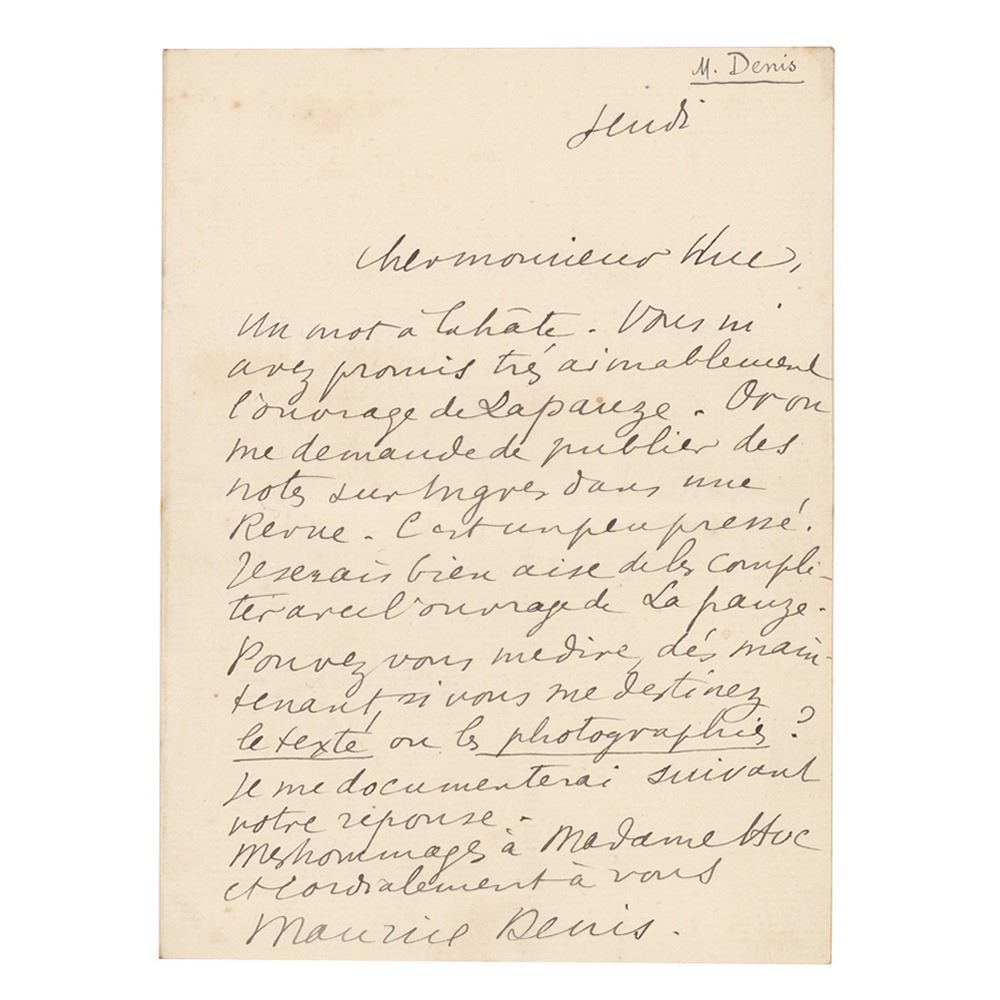 M. Denis
Jeudi
Cher monsieur Huc,
Un mot à la hâte. Vous m'
avez promis très aimablement
l'ouvrage de Lapauze. Or on
me demande de publier des
notes sur Ingres dans une
Revue. C'est un peu pressé.
Je serais bien aise de les complé-
ter avec l'ouvrage de Lapauze.
Pouvez vous me dire, dès main-
tenant, si vous me destinez
le texte ou les photographies ?
Je me documenterai suivant
votre réponse.
Mes hommages à Madame Huc
et cordialement à vous
Maurice Denis.